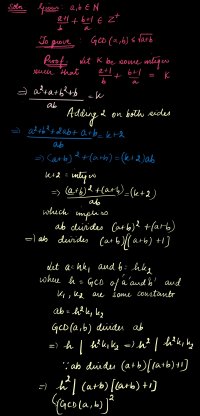 Soln Given: a,b ∈ N
a+1/b + b+1/a ∈ Z⁺
To prove: GCD(a,b) ≤ √a+b
Proof: Let K be some integer
such that a+1/b + b+1/a = K
⇒ a²+a+b²+b/ab = K
Adding 2 on both sides
⇒ a²+b²+2ab+a+b/ab = K+2
⇒ (a+b)²+(a+b) = (K+2)ab
K+2 = integer
⇒ (a+b)²+(a+b)/ab = (K+2)
which implies
ab divides (a+b)²+(a+b)
⇒ ab divides (a+b)[(a+b)+1]
Let a = hk₁ and b = hk₂
where h = GCD of 'a' and 'b' and
K₁, K₂ are some constants
ab = h²k₁k₂
GCD(a,b) divides ab
⇒ h | h²k₁k₂ ⇒ h² | h²k₁k₂
∵ ab divides (a+b)[(a+b)+1]
⇒ h² | (a+b)[(a+b)+1]
[GCD(a,b)]²